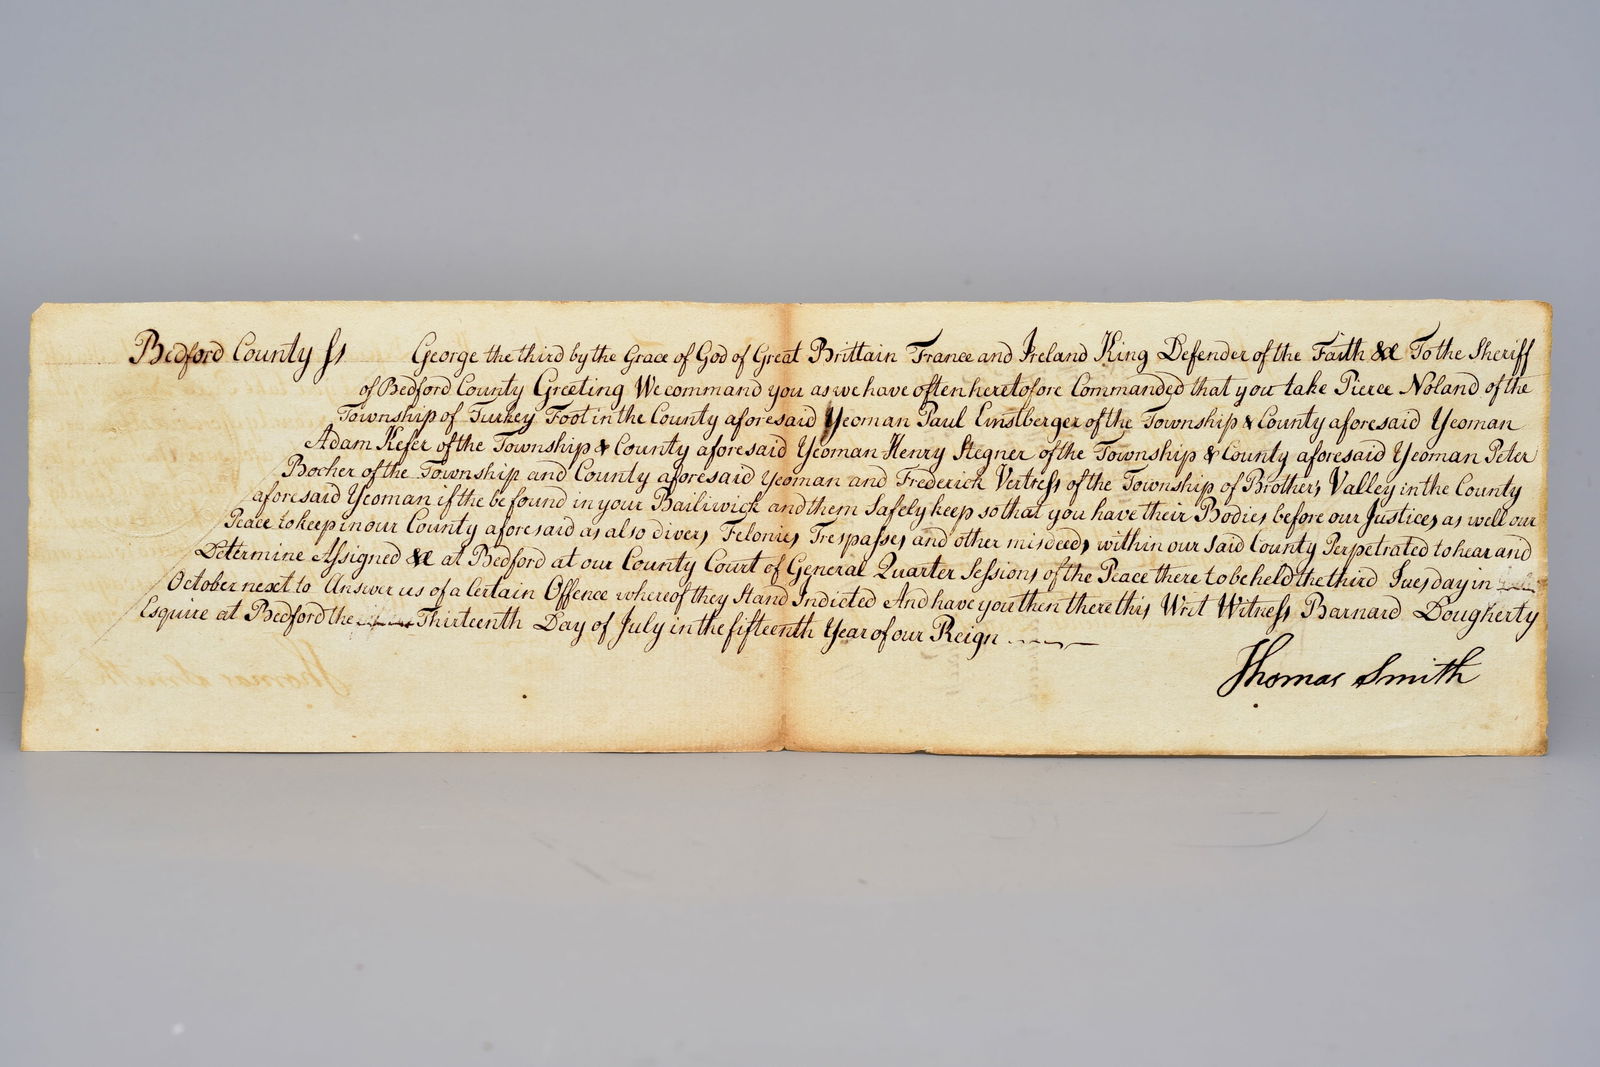 Bedford County Ss George the third by the Grace of God of Great Brittain France and Ireland King Defender of the Faith &c To the Sheriff
of Bedford County Greeting We command you as we have often heretofore Commanded that you take Pierce Noland of the
Township of Turkey Foot in the County aforesaid Yeoman Paul Ernstberger of the Township & County aforesaid Yeoman
Adam Kefer of the Township & County aforesaid Yeoman Henry Stegner of the Township & County aforesaid Yeoman Peter
Bocher of the Township and County aforesaid Yeoman and Frederick Vertress of the Township of Brothers Valley in the County
aforesaid Yeoman if the be found in your Bailiwick and them Safely keep so that you have their Bodies before our Justices as well our
Peace to keep in our County aforesaid as also divers Felonies Trespasses and other misdeeds within our said County Perpetrated to hear and
Determine Assigned &c at Bedford at our County Court of General Quarter Sessions of the Peace there to be held the third Tuesday in
October next to Answer us of a Certain Offence whereof they Stand Indicted And have you then there this Writ Witness Barnard Dougherty
Esquire at Bedford the Thirteenth Day of July in the fifteenth Year of our Reign
Thomas Smith